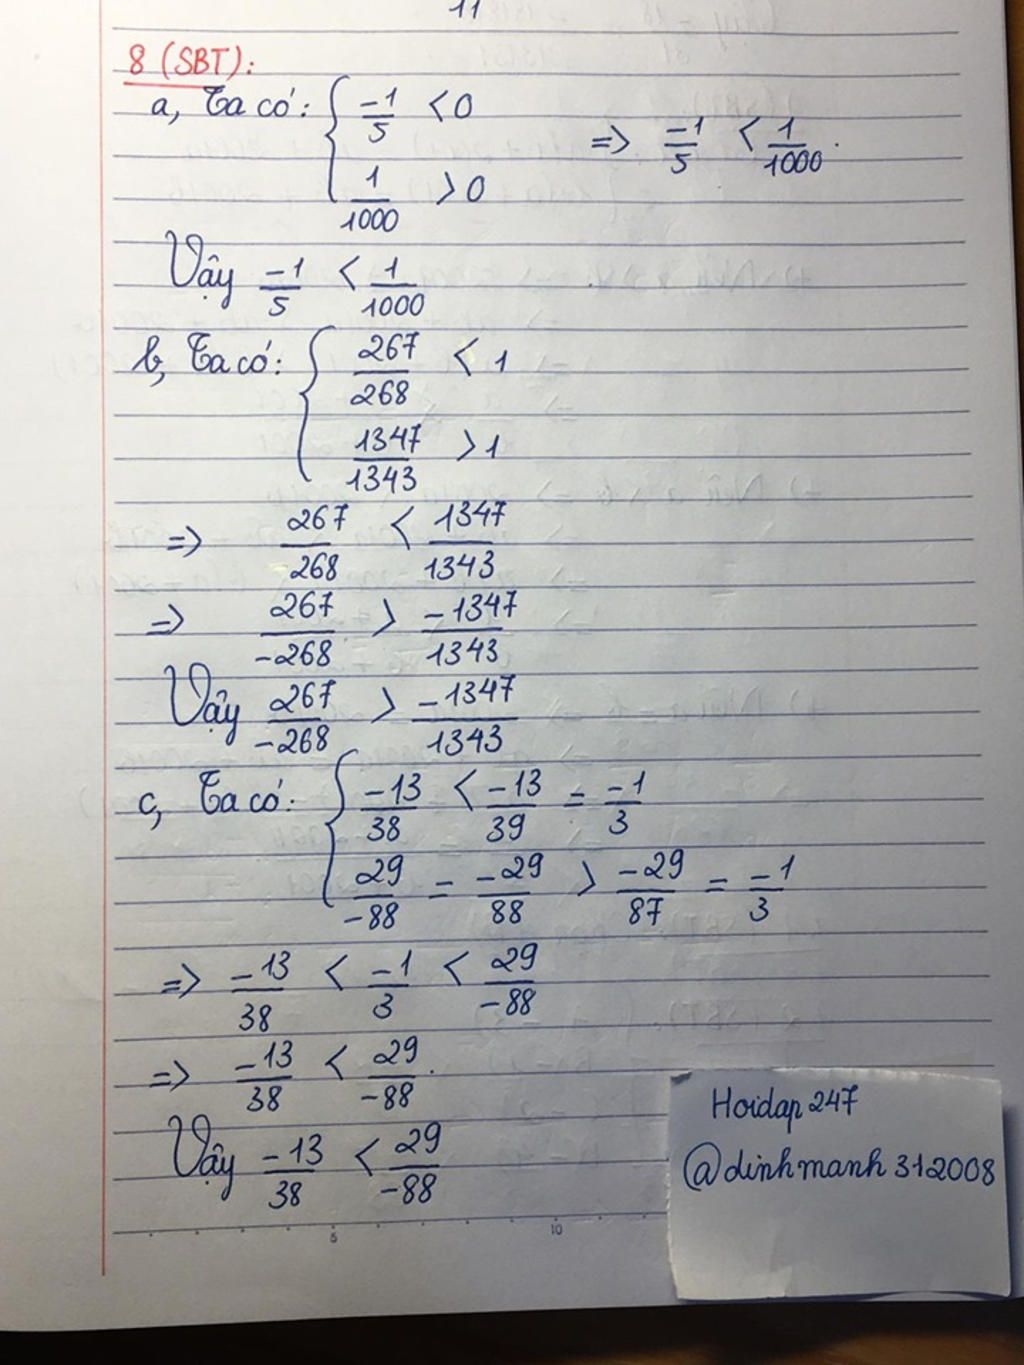 11
8 (SBT):
a, Ta có: { -1/5 < 0
1/1000 > 0 => -1/5 < 1/1000.
Vậy -1/5 < 1/1000
b, Ta có: { 267/268 < 1
1347/1343 > 1
=> 267/268 < 1347/1343
=> 267/-268 > -1347/1343
Vậy 267/-268 > -1347/1343
c, Ta có: { -13/38 < -13/39 = -1/3
29/-88 = -29/88 > -29/87 = -1/3
=> -13/38 < -1/3 < 29/-88
=> -13/38 < 29/-88.
Vậy -13/38 < 29/-88
Hoidap247
@dinhmanh312008
5 10